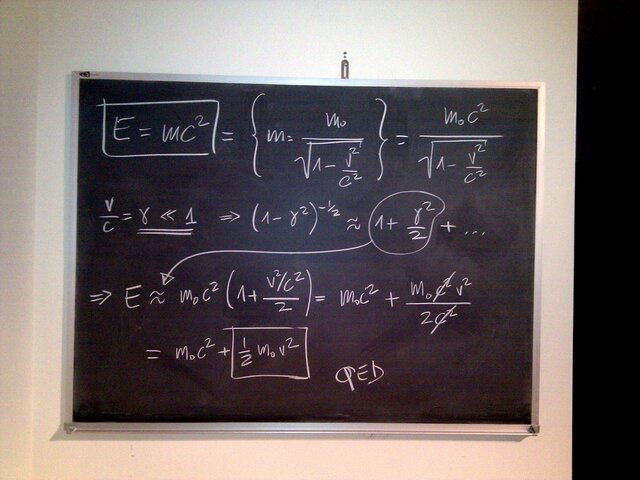 E = mc² = { m = m₀ / √(1 - v²/c²) } = m₀c² / √(1 - v²/c²)
v/c = γ ≪ 1 ⇒ (1 - γ²)^(-1/2) ≈ 1 + γ²/2 + ...
⇒ E ≈ m₀c² (1 + (v²/c²)/2) = m₀c² + m₀c²v² / 2c²
= m₀c² + ½ m₀v²
QED